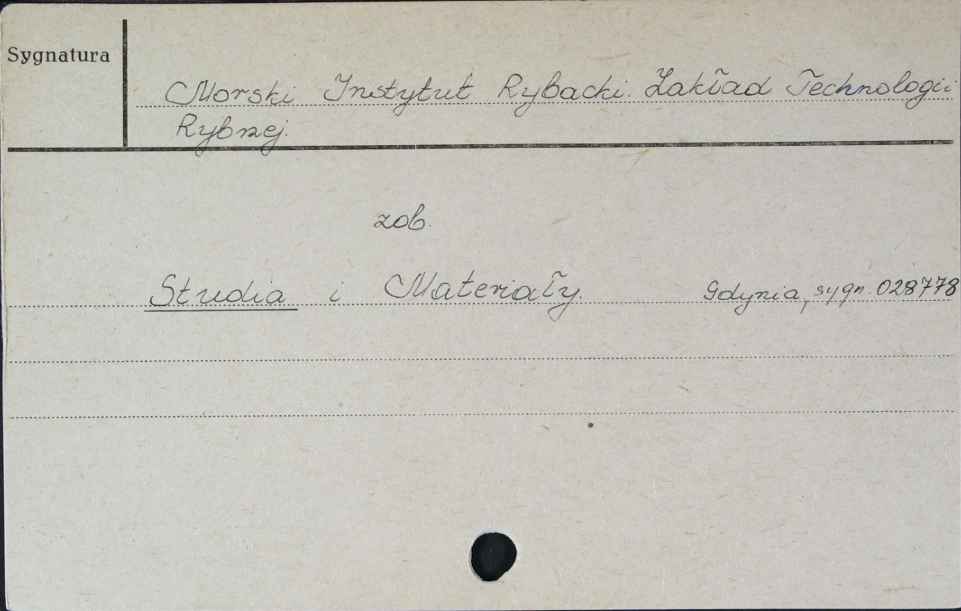 Sygnatura
Morski Instytut Rybacki. Zakład Technologii
Rybnej.
zob.
Studia i Materiały. Gdynia, sygn. 028778